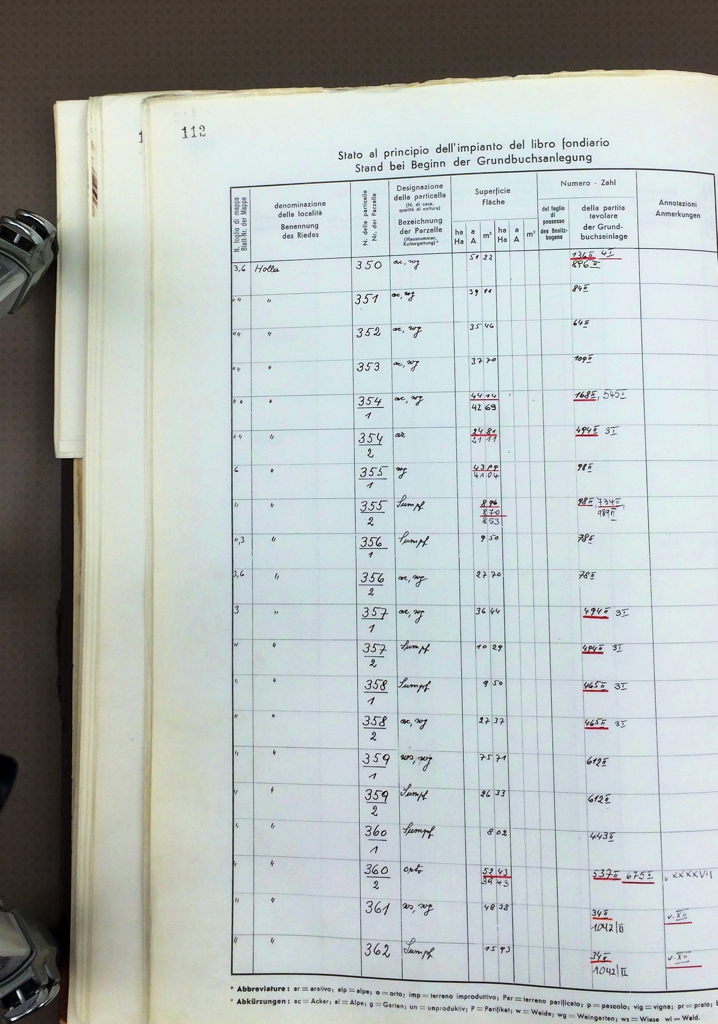 112
Stato al principio dell'impianto del libro fondiario
Stand bei Beginn der Grundbuchsanlegung
N. foglio di mappa
Blatt-Nr. der Mappe
denominazione della località
Benennung des Riedes
N. della particella
Nr. der Parzelle
Designazione della particella
(N. di casa, qualità di coltura)
Bezeichnung der Parzelle
(Hausnummer, Kulturgattung)*
Superficie
Fläche
ha a m² ha a m²
Ha A Ha A
Numero - Zahl
del foglio di possesso
des Besitzbogens
della partita tavolare
der Grundbuchseinlage
Annotazioni
Anmerkungen
3,6 Holla 350 ac, wg 51 22 136 II 4 I
896 II
" " " 351 ac, wg 39 11 84 II
" " " 352 ac, wg 35 46 64 II
" " " 353 ac, wg 37 70 109 II
" " " 354/1 ac, wg 44 14 168 II, 545 I
42 69
" " " 354/2 ac 24 81 494 II 3 I
21 11
6 " 355/1 wg 98 II
41 04
" " 355/2 Sumpf 8 96 98 II, 734 II,
8 70 989 II
8 53
",3 " 356/1 Sumpf 9 50 78 II
3,6 " 356/2 ac, wg 27 70 78 II
3 " 357/1 ac, wg 36 44 494 II 3 I
" " 357/2 Sumpf 10 29 494 II 3 I
" " 358/1 Sumpf 9 50 465 II 3 I
" " 358/2 ac, wg 27 37 465 II 3 I
" " 359/1 ws, wg 75 71 612 II
" " 359/2 Sumpf 26 33 612 II
" " 360/1 Sumpf 8 02 443 II
" " 360/2 orto 52 43 537 II 675 I, v XXXXVII
39 43
" " 361 ws, wg 48 38 34 II v. XII
1042/II
" " 362 Sumpf 15 93 34 II v. XII
1042/II
* Abbreviature: ar = arativo; alp = alpe; o = orto; imp = terreno improduttivo; Par = terreno parificato; p = pascolo; vig = vigna; pr = prato;
* Abkürzungen: ac = Acker; al = Alpe; g = Garten; un = unproduktiv; P = Parifikat; w = Weide; wg = Weingarten; ws = Wiese wl = Wald.